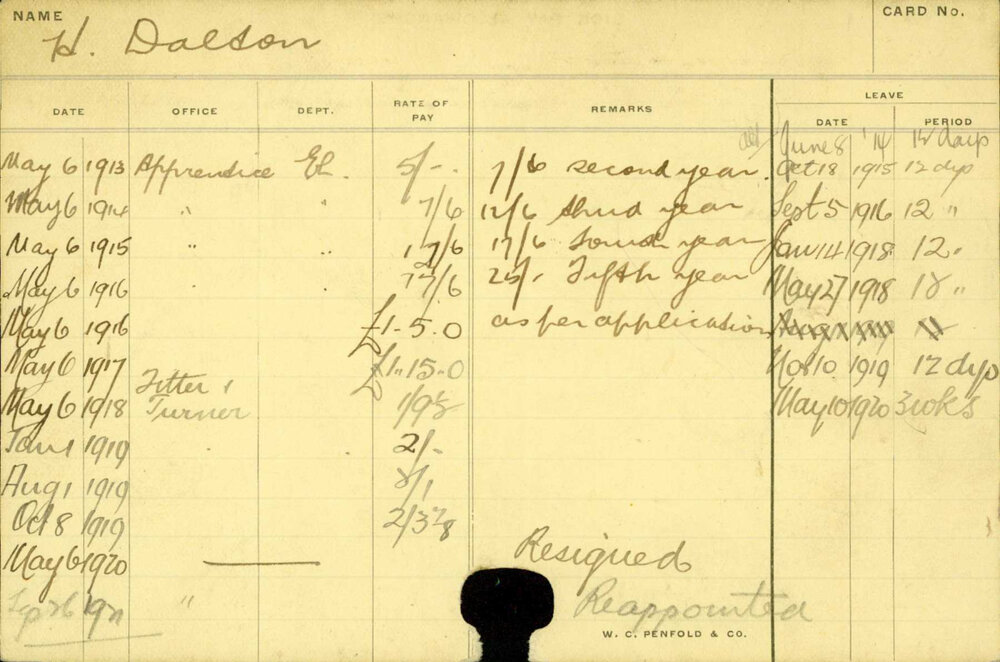 NAME
H. Dalson
CARD No.
DATE OFFICE DEPT. RATE OF PAY REMARKS LEAVE
DATE PERIOD
June 8 '14 12 days
May 6 1913 Apprentice El. 5/- 7/6 second year. Oct 18 1915 12 dys
May 6 1914 " " 7/6 12/6 third year Sept 5 1916 12 "
May 6 1915 " " 17/6 fourth year Jan 14 1918 12 "
May 6 1916 " " 17/6 25/- Fifth year May 27 1918 "
May 6 1916 £1-5-0 as per application
May 6 1917 £1-15-0 Nov 10 1919 12 dys
Fitter &
May 6 1918 Turner 1/9½ May 10 1920 3 wks
Jan 1 1919 2/-
Aug 1 1919
Oct 8 1919 2/3⅞
May 6 1920 — Resigned
" Reappointed
W. C. PENFOLD & CO.